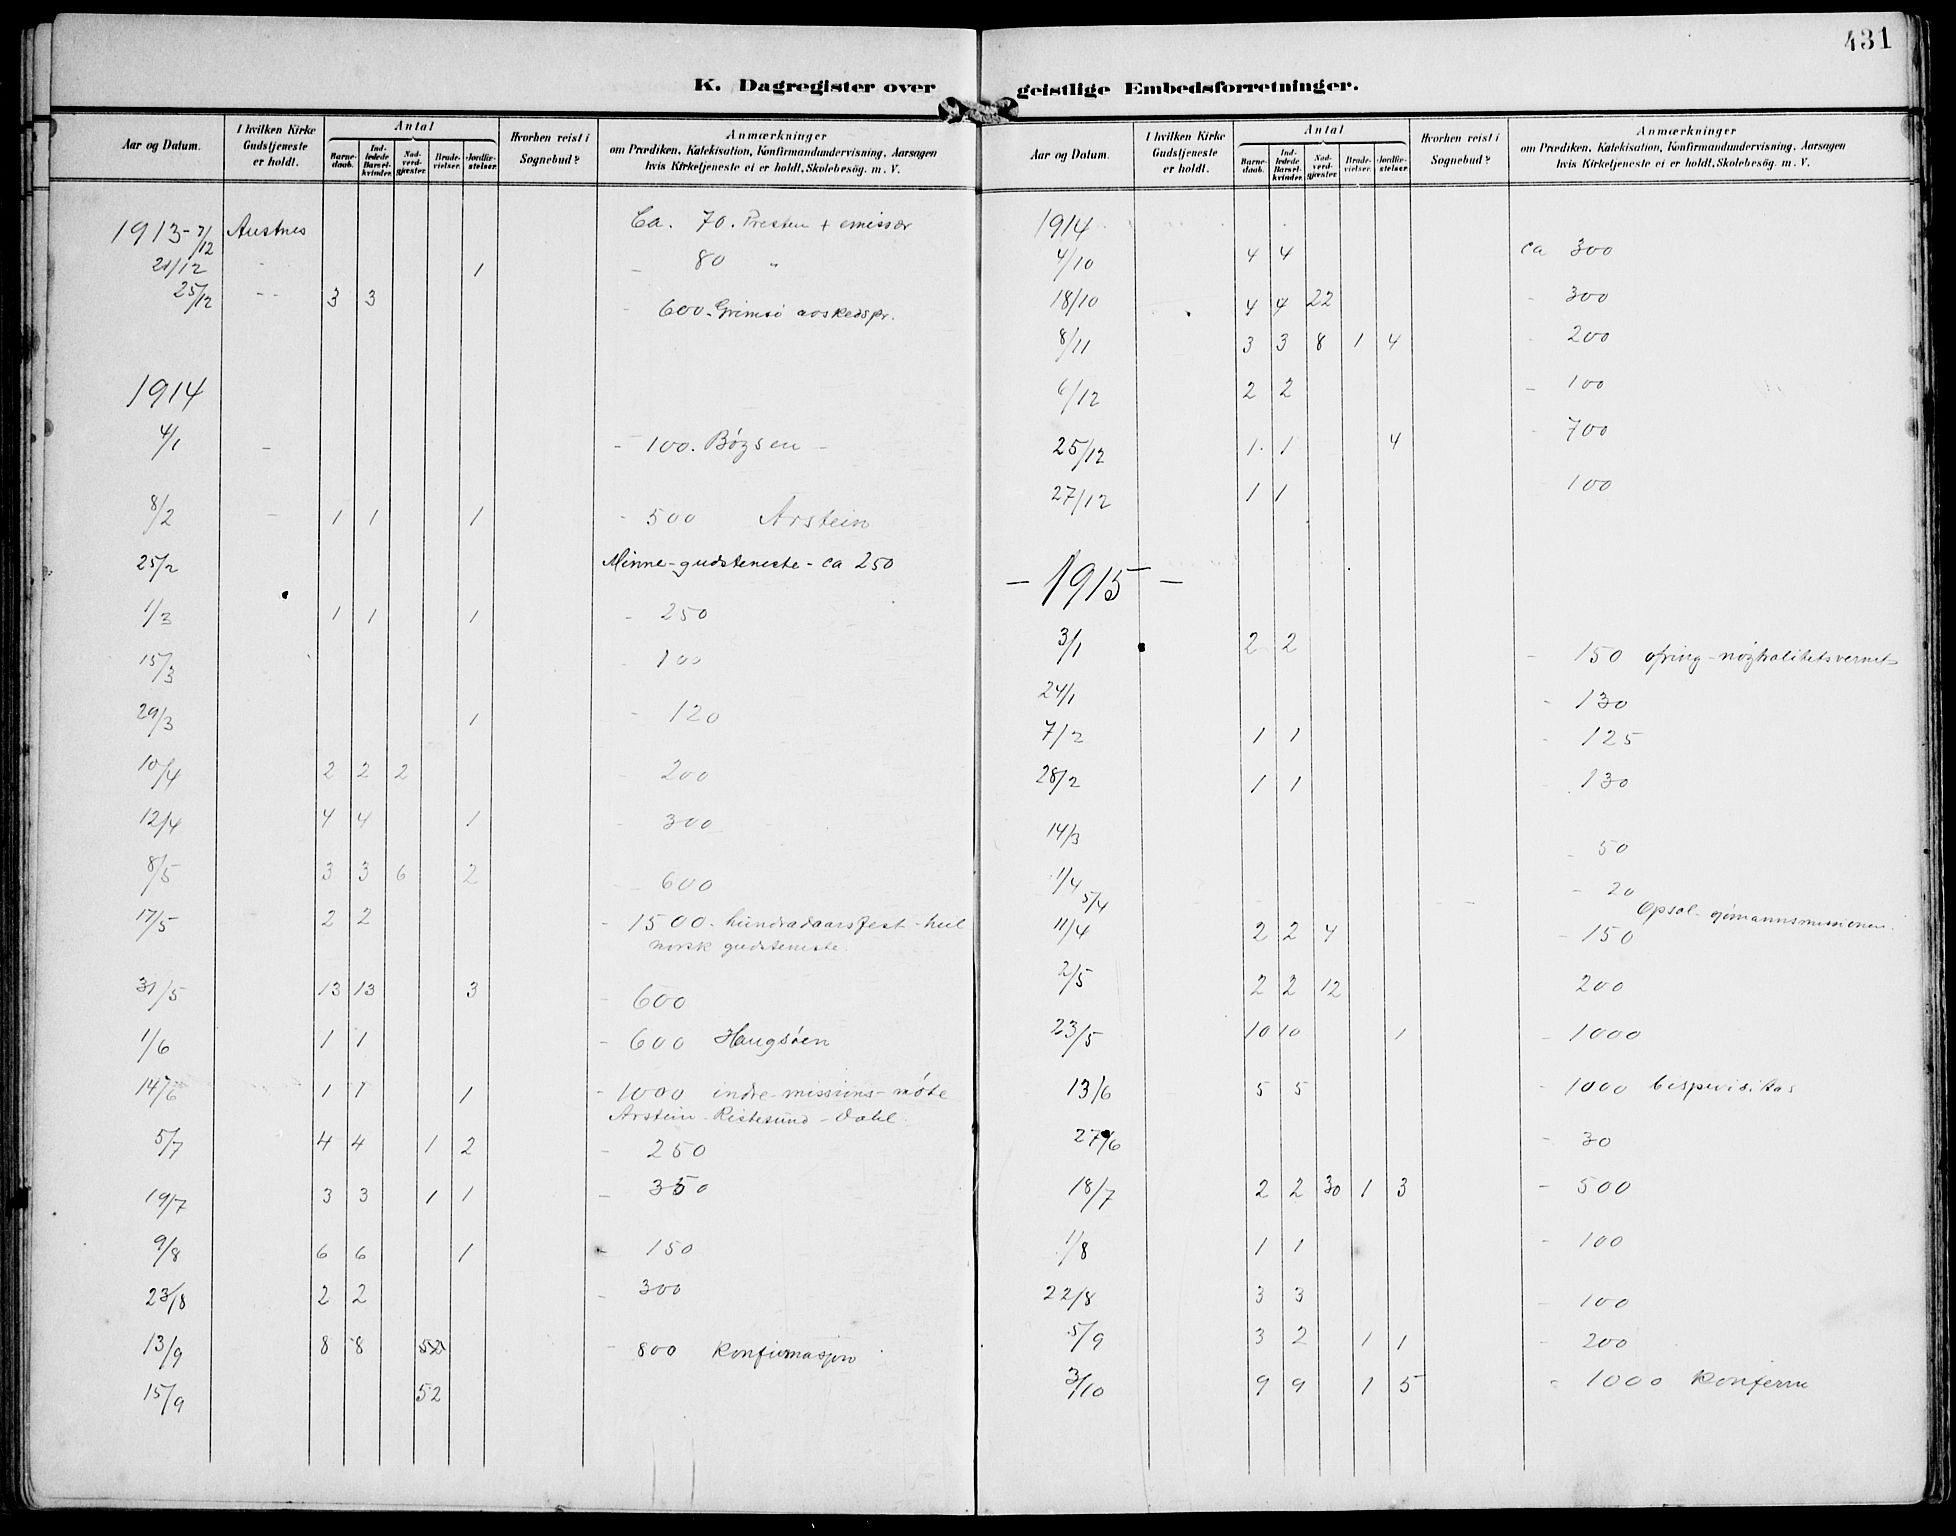 431
K. Dagregister over geistlige Embedsforretninger.
Aar og Datum. I hvilken Kirke Gudstjeneste er holdt. Antal Barnedaab. Indledede Barselkvinder. Nadverdgjæster. Brudevielser. Jordfæstelser. Hvorhen reist i Sognebud? Anmærkninger om Prædiken, Katekisation, Konfirmandundervisning, Aarsagen hvis Kirketjeneste ei er holdt, Skolebesøg. m. V.
1913 - 7/12 Austnes Ca. 70. Presten + emissær
21/12 - 1 - 80 "
25/12 - - 3 3 - 600. Grimsö avskedspr.
1914
4/1 - - 100. Bøgsen -
8/2 - 1 1 1 - 500 Arstein
25/2 Minne-gudsteneste - ca 250
1/3 1 1 1 - 250
15/3 - 100
29/3 1 - 120
10/4 2 2 2 - 200
12/4 4 4 1 - 300
8/5 3 3 6 2 - 600
17/5 2 2 - 1500. hundradaarsfest - heil
norsk gudsteneste.
31/5 13 13 3 - 600
1/6 1 1 - 600 Haugsöen
14/6 1 1 1 - 1000 indre-missions-möte
Arstein - Ristesund - Dahl.
5/7 4 4 1 2 - 250
19/7 3 3 1 1 - 350
9/8 6 6 1 - 150
23/8 2 2 - 300
13/9 8 8 52 - 800 Konfirmasjon
15/9 52
Aar og Datum. I hvilken Kirke Gudstjeneste er holdt. Antal Barnedaab. Indledede Barselkvinder. Nadverdgjæster. Brudevielser. Jordfæstelser. Hvorhen reist i Sognebud? Anmærkninger om Prædiken, Katekisation, Konfirmandundervisning, Aarsagen hvis Kirketjeneste ei er holdt, Skolebesøg. m. V.
1914
4/10 4 4 ca 300
18/10 4 4 22 - 300
8/11 3 3 8 1 4 - 200
6/12 2 2 - 100
25/12 1 1 4 - 700
27/12 1 1 100
- 1915 -
3/1 2 2 - 150 ofring - nøytralitetsvernet
24/1 - 130
7/2 1 1 - 125
28/2 1 1 - 130
14/3 - 50
1/4 - 20
5/4 Opsal - sjømannsmissionen.
11/4 2 2 4 - 150
2/5 2 2 12 200
23/5 10 10 1 - 1000
13/6 5 5 - 1000 bispevisitas
27/6 - 30
18/7 2 2 30 1 3 - 500
1/8 1 1 - 100
22/8 3 3 - 100
5/9 3 2 1 1 - 200
3/10 9 9 1 5 - 1000 Konferm